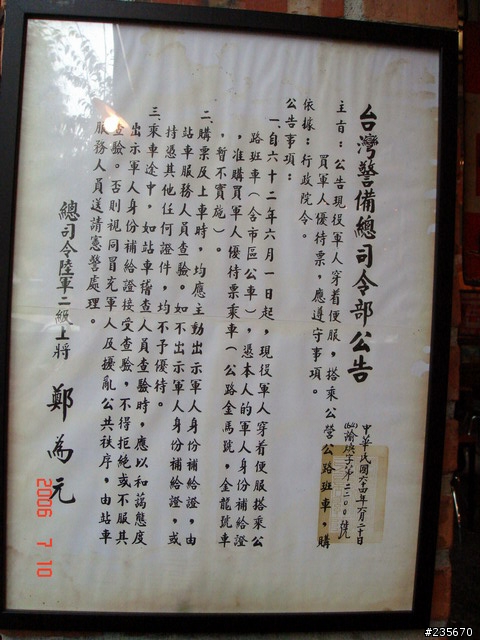 台灣警備總司令部公告
中華民國六十四年八月二十日
主旨：公告現役軍人穿着便服，搭乘公營公路班車，購
買軍人優待票，應遵守事項。
依據：行政院令。
公告事項：
一、自六十二年六月一日起，現役軍人穿着便服搭乘公
路班車（含市區公車），憑本人的軍人身份補給證
，准購買軍人優待票乘車（公路金馬號，金龍號車
，暫不實施）。
二、購票及上車時，均應主動出示軍人身份補給證，由
站車服務人員查驗。如不出示軍人身份補給證，或
持憑其他任何證件，均不予優待。
三、乘車途中，如站車稽查人員查驗時，應以和藹態度
出示軍人身份補給證接受查驗，不得拒絕或不服其
查驗。否則視同冒充軍人及擾亂公共秩序，由站車
服務人員送請憲警處理。
總司令陸軍二級上將 鄭為元
2006 7 10
#235670